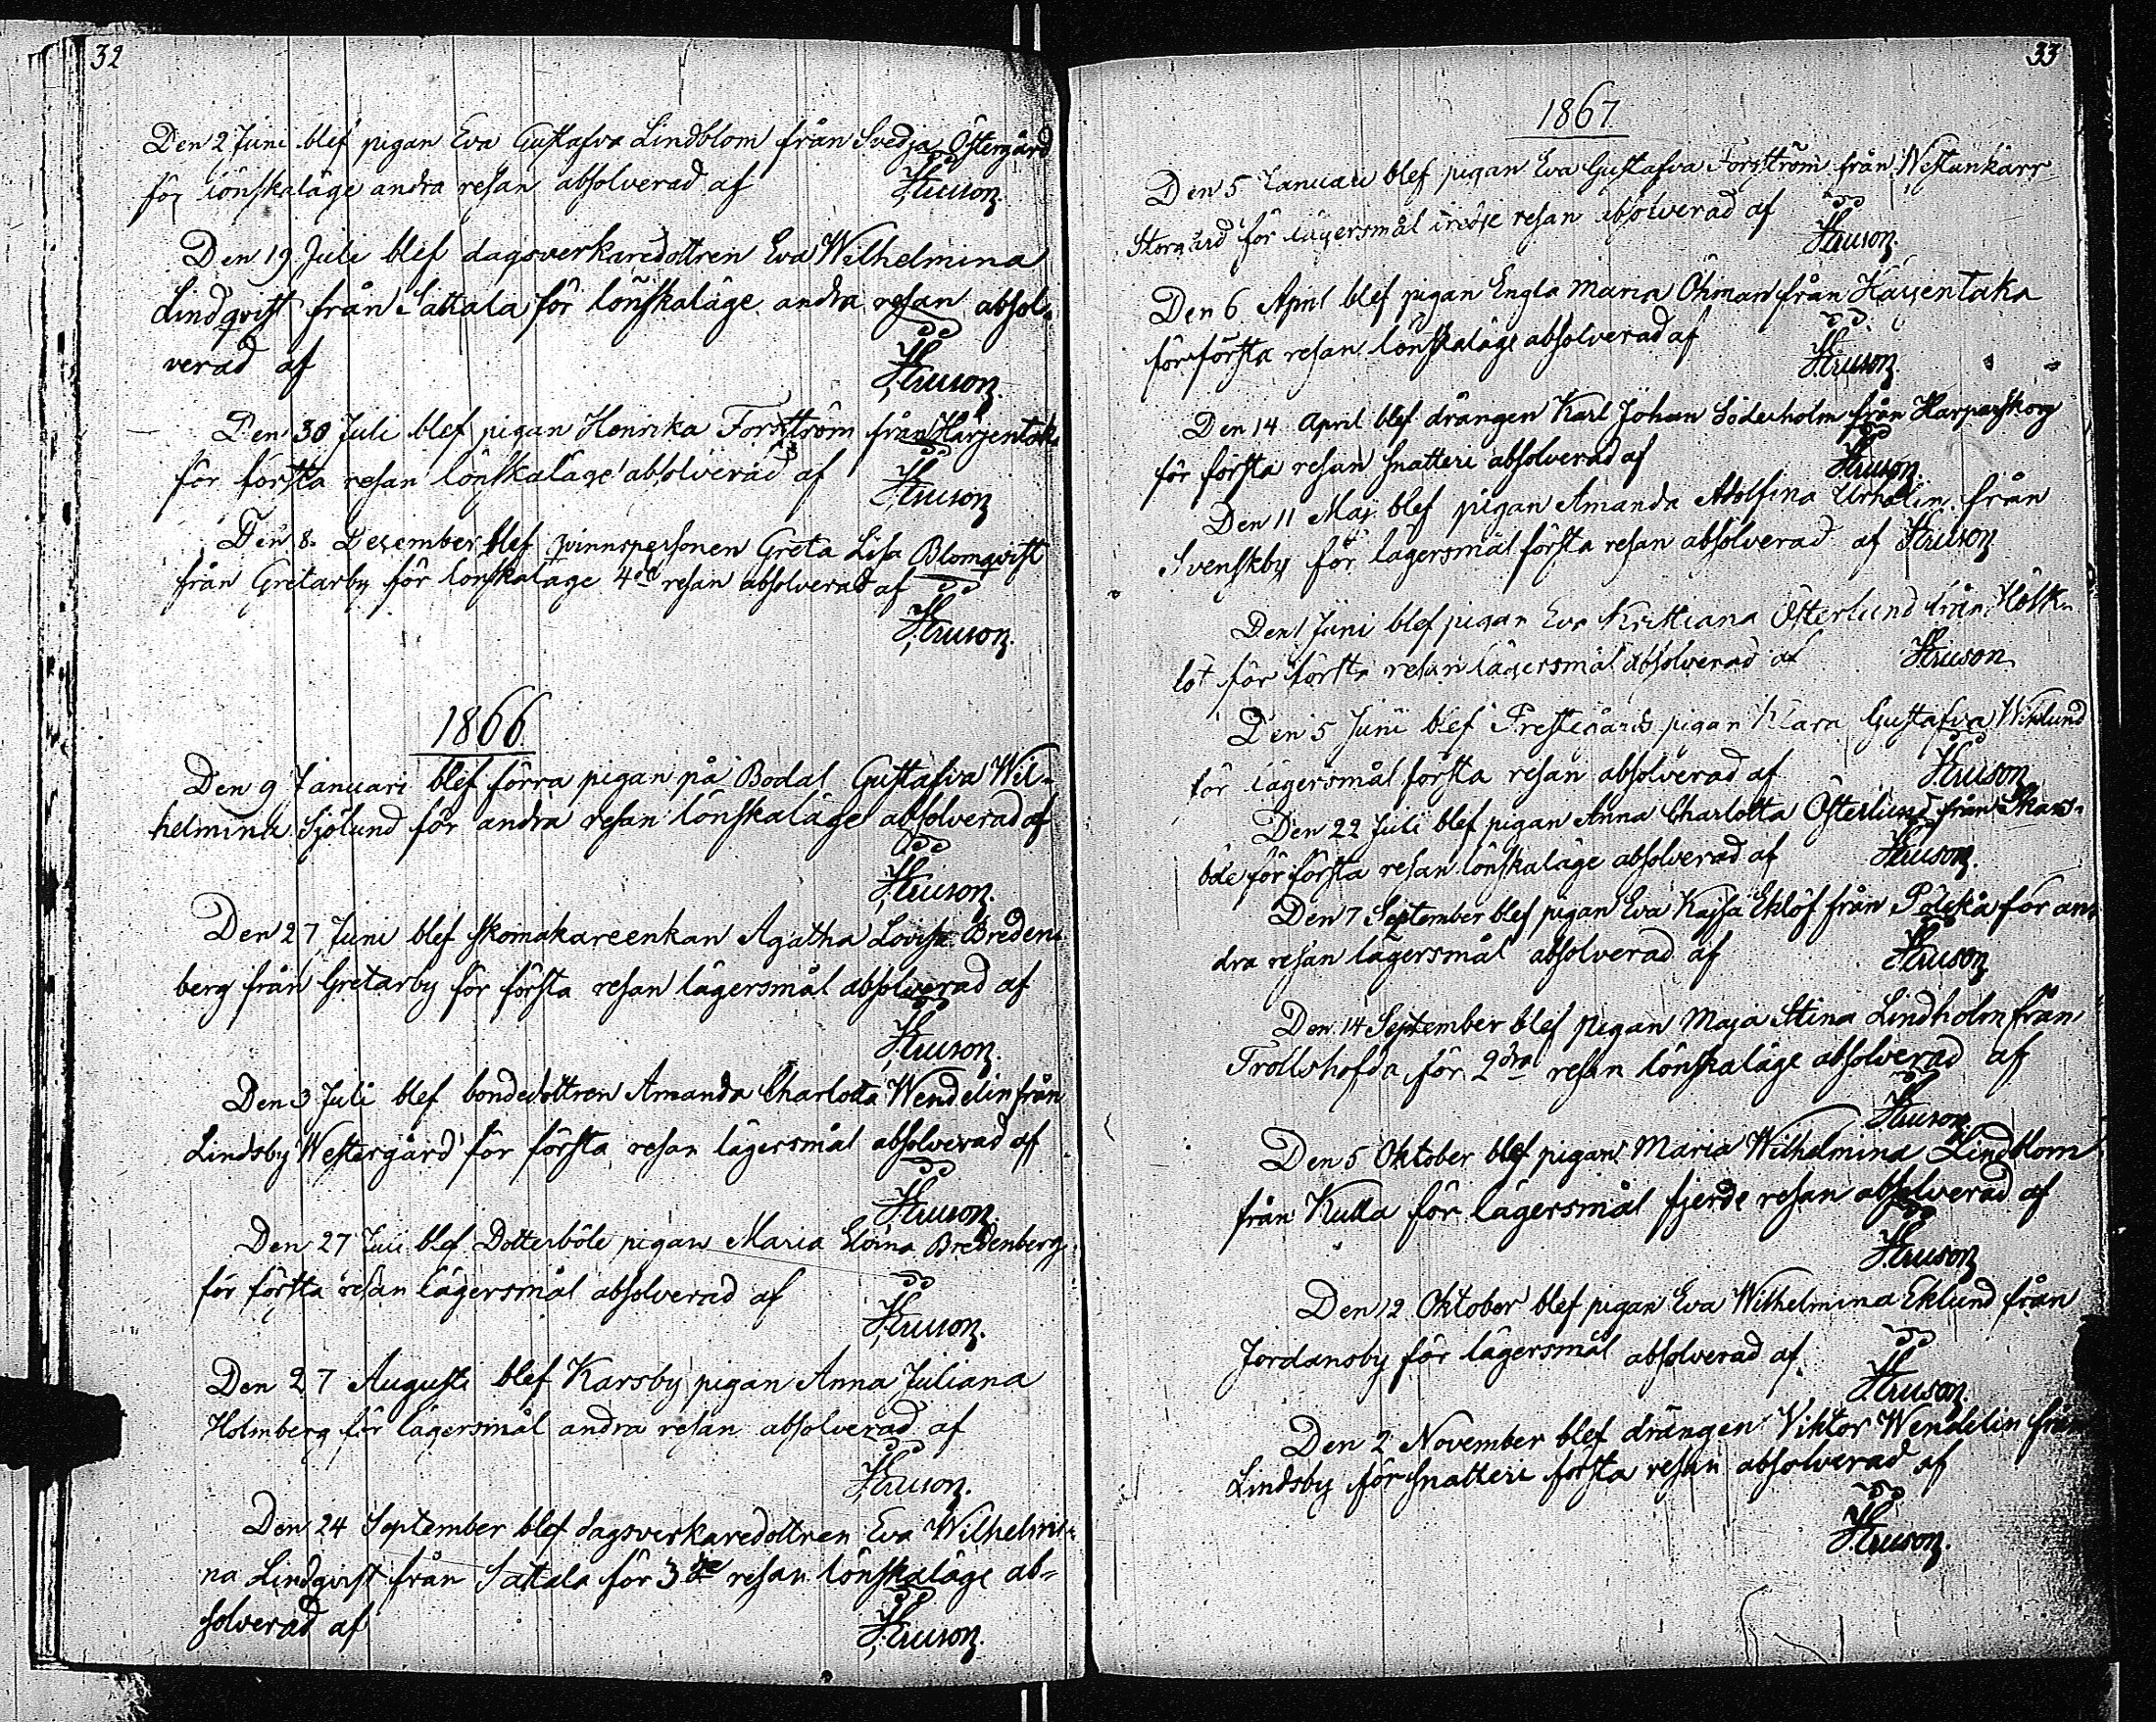 32
Den 2 Juni blef pigan Eva Gustafva Lindblom från Svedja Östergård
för lönskaläge andra resan absolverad af
Den 19 Juli blef dagsverkaredottren Eva Wilhelmina
Lindqvist från Sattala för lönskaläge andra resan absol-
verad af
Den 30 Juli blef pigan Henrika Forsström från Härjentaka
för första resan lönskaläge absolverad af
Den 8 December blef qvinnspersonen Greta Lisa Blomqvist
från Gretarby för lönskaläge 4de resan absolverad af
1866
Den 9 Januari blef förra pigan på Bodal Gustafva Wil-
helmina Sjölund för andra resan lönskaläge absolverad af
Den 27 Juni blef skomakareenkan Agatha Lovisa Breden-
berg från Gretarby för första resan lägersmål absolverad af
Den 3 Juli blef bondedottren Amanda Charlotta Wendelin från
Lindsby Westergård för första resan lägersmål absolverad af
Den 27 Juli blef Dotterböle pigan Maria Elvina Bredenberg
för första resan lägersmål absolverad af
Den 27 Augusti blef Karsby pigan Anna Juliana
Holmberg för lägersmål andra resan absolverad af
Den 24 September blef dagsverkaredottren Eva Wilhelmi-
na Lindqvist från Sattala för 3dje resan lönskaläge ab-
solverad af
33
1867
Den 5 Januari blef pigan Eva Gustafva Forsström från Westankärr
Storgård för lägersmål tredje resan absolverad af
Den 6 April blef pigan Engla Maria Öhman från Härjentaka
för första resan lönskaläge absolverad af
Den 14 April blef drängen Karl Johan Söderholm från Harparskog
för första resan snatteri absolverad af
Den 11 Maj blef pigan Amanda Adolfina från
Svenskby för lägersmål första resan absolverad af
Den 1 Juni blef pigan Eva Kristiana Österlund från
för första resan lägersmål absolverad af
Den 5 Juni blef Prestegårds pigan Klara Gustafva Wiklund
för lägersmål första resan absolverad af
Den 22 Juli blef pigan Anna Charlotta Österlund från
för första resan lönskaläge absolverad af
Den 7 September blef pigan Eva Kajsa Eklöf från för an-
dra resan lägersmål absolverad af
Den 14 September blef pigan Maja Stina Lindholm från
Trollshofda för 2dra resan lönskaläge absolverad af
Den 5 Oktober blef pigan Maria Wilhelmina Lindblom
från Kulla för lägersmål fjerde resan absolverad af
Den 12 Oktober blef pigan Eva Wilhelmina Eklund från
Jordansby för lägersmål absolverad af
Den 2 November blef drängen Viktor Wendelin från
Lindsby för snatteri första resan absolverad af